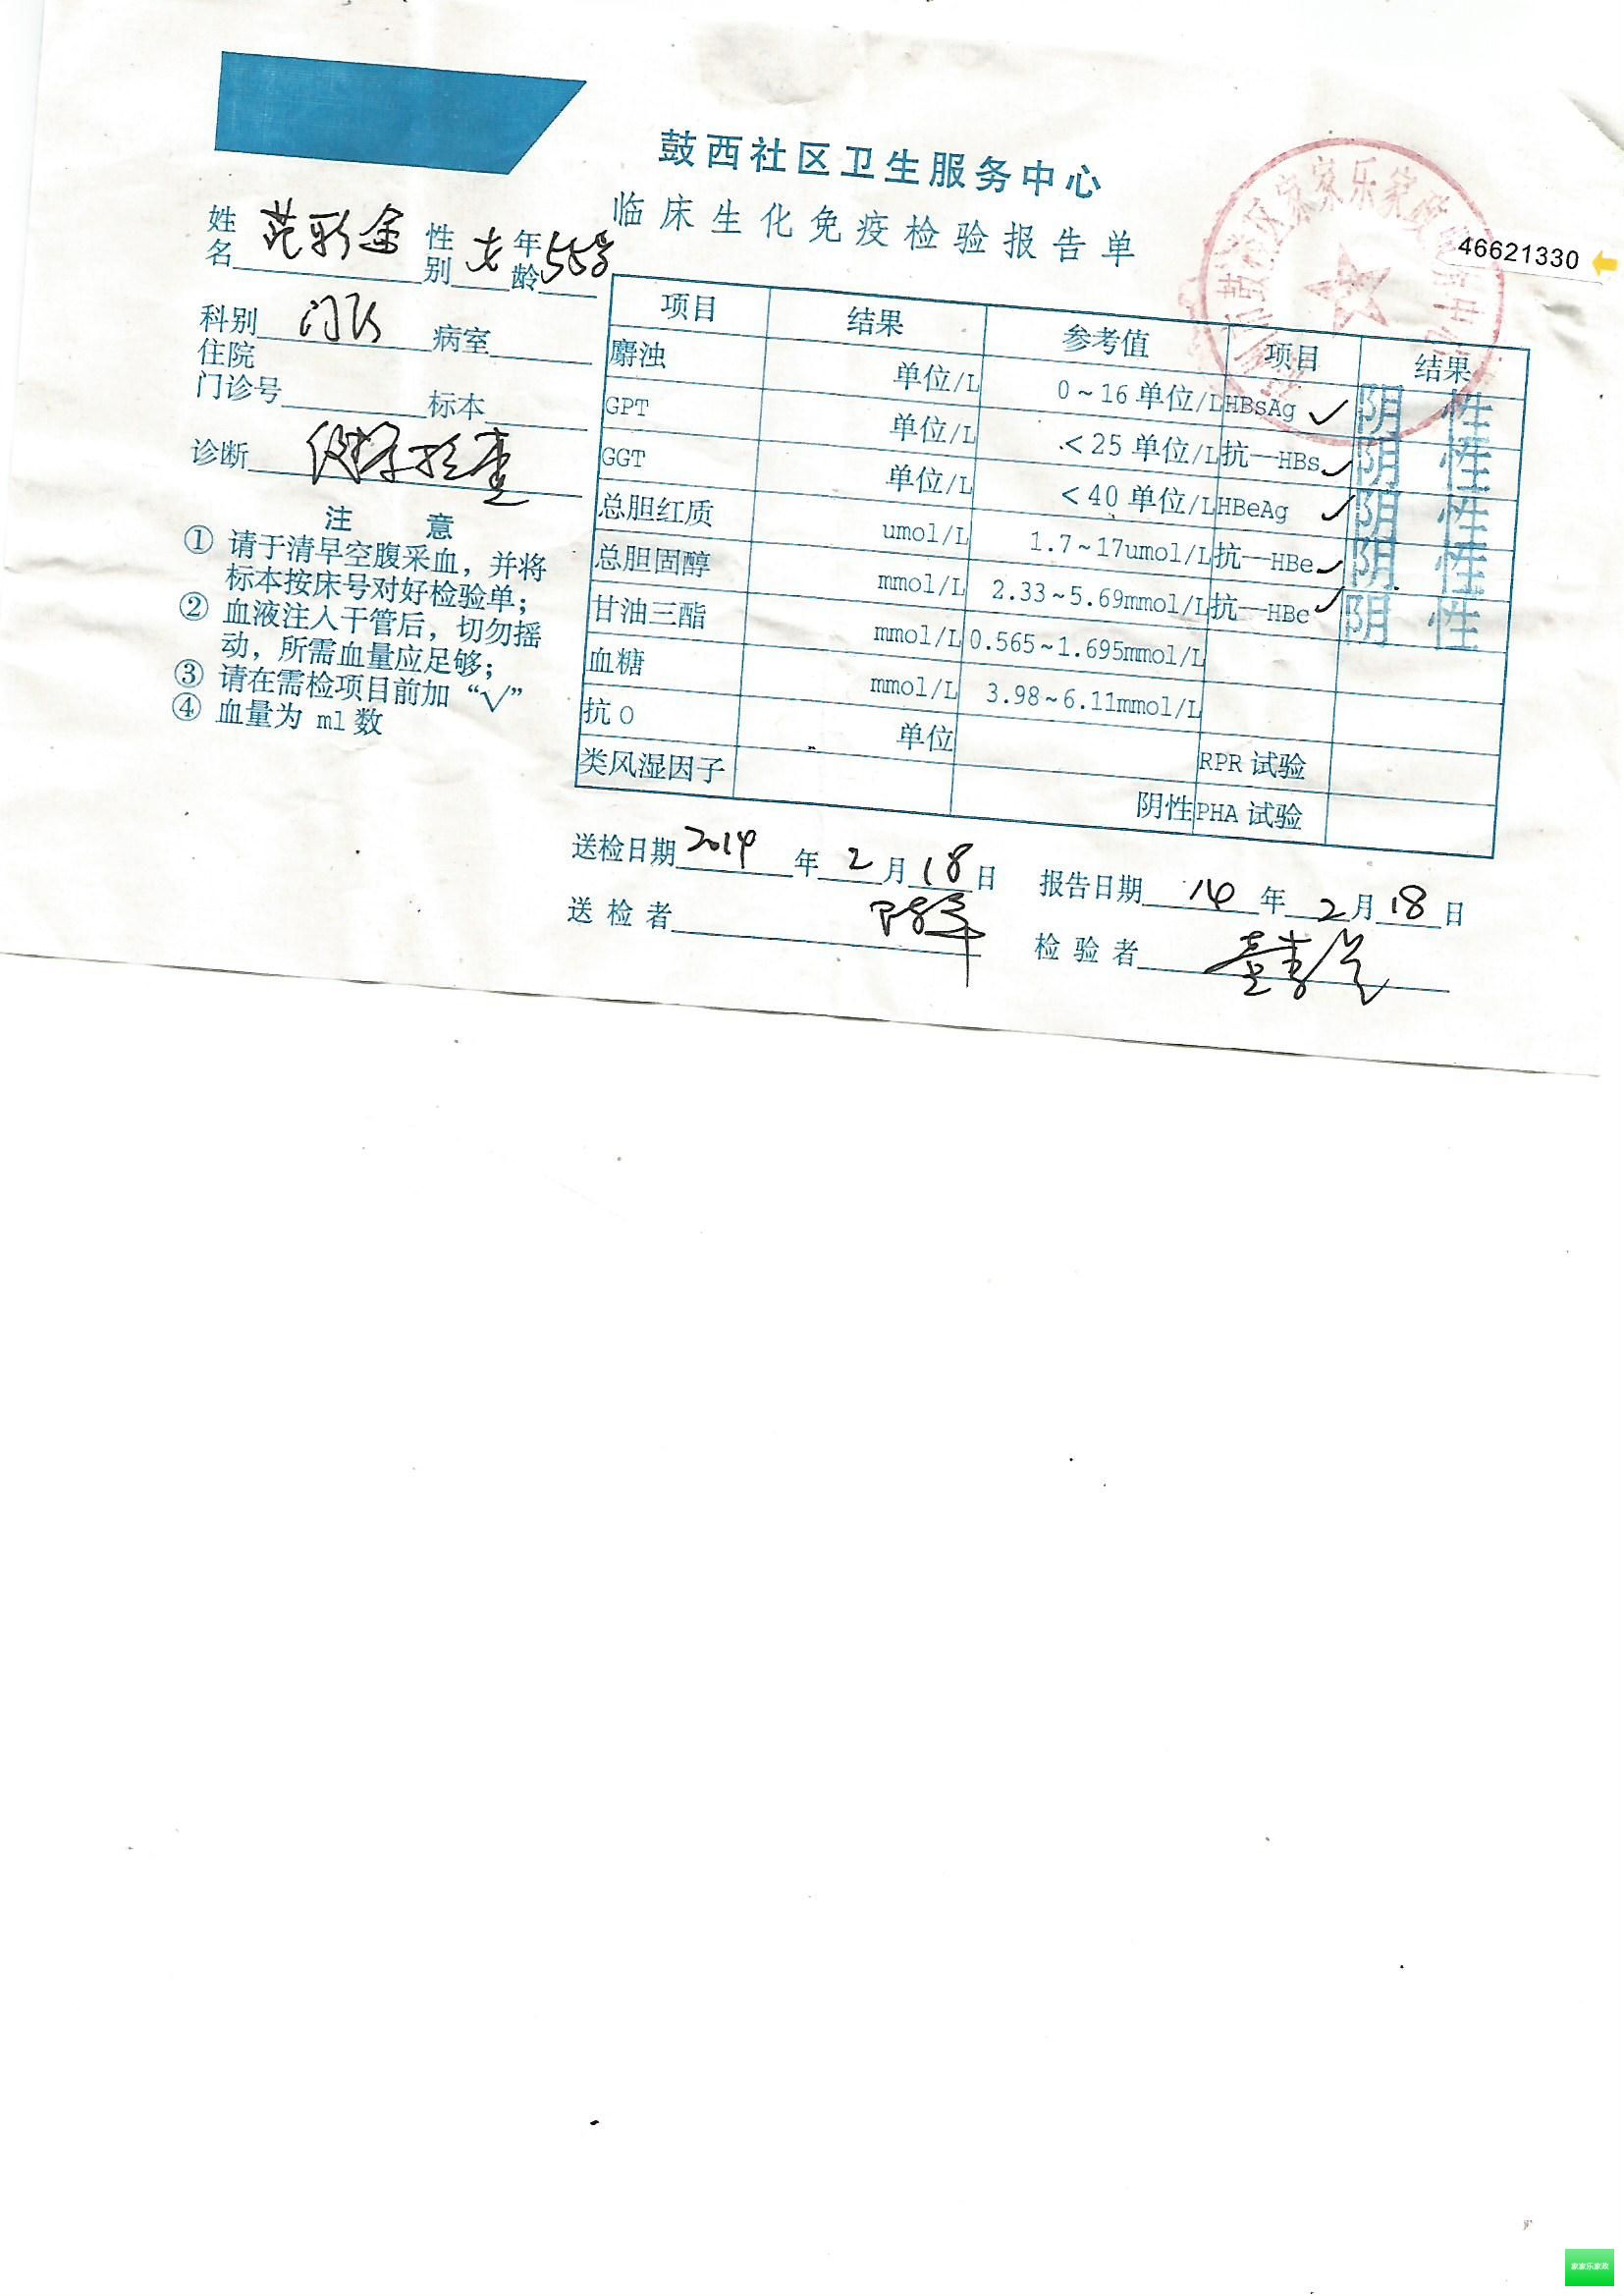 鼓西社区卫生服务中心
临床生化免疫检验报告单
46621330
姓名 范彩金 性别 女 年龄 55岁
科别 门诊 病室
住院
门诊号 标本
诊断 健康检查
注 意
① 请于清早空腹采血，并将
标本按床号对好检验单；
② 血液注入干管后，切勿摇
动，所需血量应足够；
③ 请在需检项目前加“√”
④ 血量为 ml 数
项目 结果 参考值 项目 结果
麝浊 单位/L 0~16 单位/L HBsAg ✓ 阴 性
GPT 单位/L <25 单位/L 抗—HBs ✓ 阴 性
GGT 单位/L <40 单位/L HBeAg ✓ 阴 性
总胆红质 umol/L 1.7~17umol/L 抗—HBe ✓ 阴 性
总胆固醇 mmol/L 2.33~5.69mmol/L 抗—HBc ✓ 阴 性
甘油三酯 mmol/L 0.565~1.695mmol/L
血糖 mmol/L 3.98~6.11mmol/L
抗 O 单位 RPR 试验
类风湿因子 阴性 PHA 试验
送检日期 2014 年 2 月 18 日 报告日期 14 年 2 月 18 日
送 检 者 检 验 者
家家乐家政